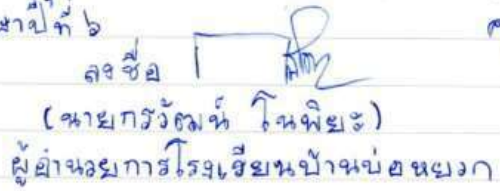 าปีที่ ๖
ลงชื่อ
(นายกรวัฒน์ โนพิยะ)
ผู้อำนวยการโรงเรียนบ้านบ่อหยวก